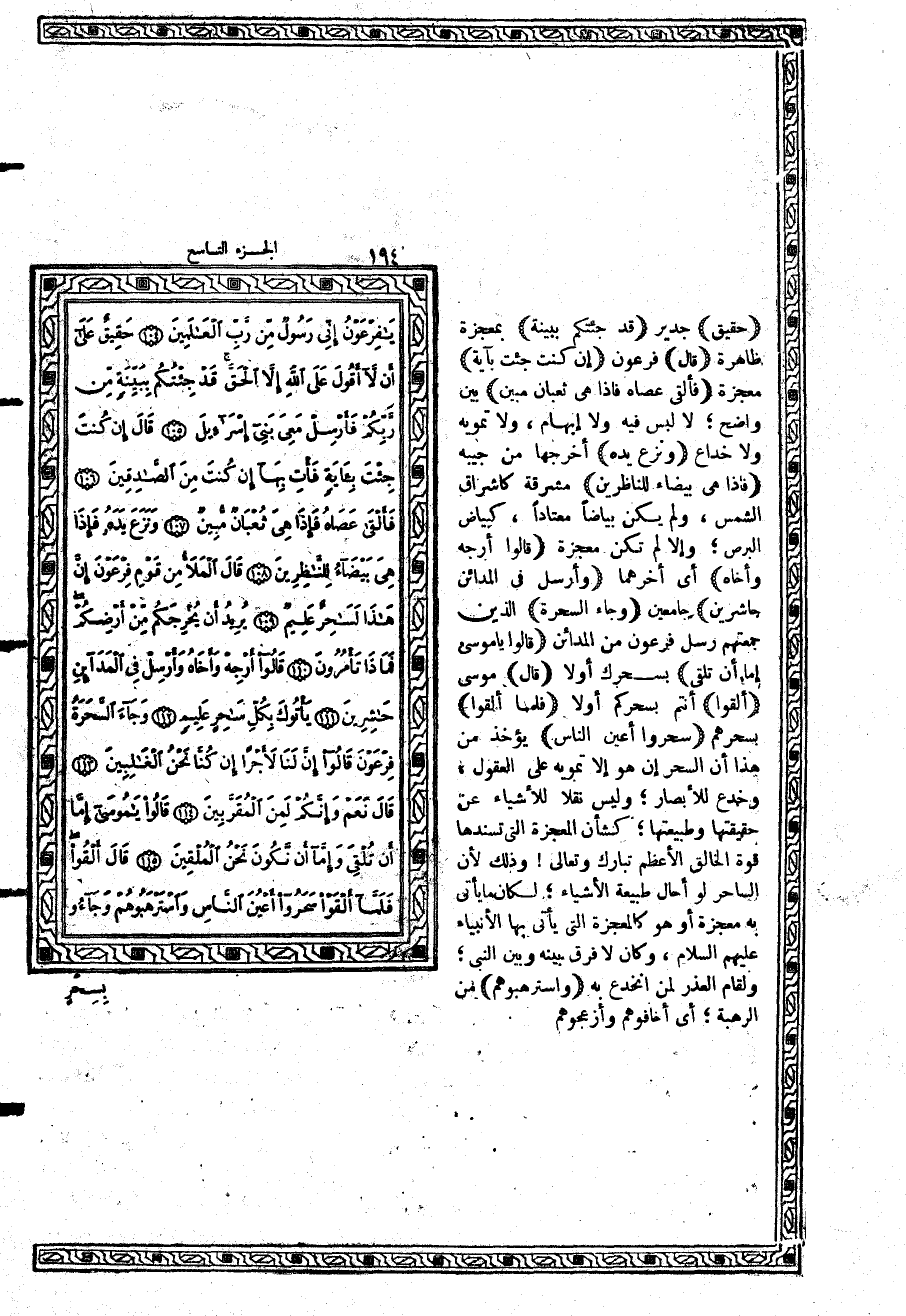 ١٩٤
الجزء التاسع
(حقيق) جدير (قد جئتكم ببينة) بمعجزة
ظاهرة (قال) فرعون (إن كنت جئت بآية)
معجزة (فألقى عصاه فاذا هى ثعبان مبين) بين
واضح ؛ لا لبس فيه ولا إيهام ، ولا تمويه
ولا خداع (ونزع يده) أخرجها من جيبه
(فاذا هى بيضاء للناظرين) مشرقة كاشراق
الشمس ، ولم يكن بياضاً معتاداً ، كبياض
البرص ؛ وإلا لم تكن معجزة (قالوا أرجه
وأخاه) أى أخرهما (وأرسل فى المدائن
حاشرين) جامعين (وجاء السحرة) الذين
جمعتهم رسل فرعون من المدائن (قالوا ياموسى
إما أن تلقى) بسحرك أولا (قال) موسى
(ألقوا) أنتم بسحركم أولا (فلما ألقوا)
بسحرهم (سحروا أعين الناس) يؤخذ من
هذا أن السحر إن هو إلا تمويه على العقول ؛
وخدع للأبصار ؛ وليس نقلا للأشياء عن
حقيقتها وطبيعتها ؛ كشأن المعجزة التى تسندها
قوة الخالق الأعظم تبارك وتعالى ! وذلك لأن
الساحر لو أحال طبيعة الأشياء ؛ لكان مايأتى
به معجزة أو هو كالمعجزة التى يأتى بها الأنبياء
عليهم السلام ، وكان لا فرق بينه وبين النبى ؛
ولقام العذر لمن انخدع به (واسترهبوهم) من
الرهبة ؛ أى أخافوهم وأزعجوهم
يَٰفِرْعَوْنُ إِنِّى رَسُولٌ مِّن رَّبِّ ٱلْعَٰلَمِينَ ١٠٤ حَقِيقٌ عَلَىٰٓ
أَن لَّآ أَقُولَ عَلَى ٱللَّهِ إِلَّا ٱلْحَقَّ ۚ قَدْ جِئْتُكُم بِبَيِّنَةٍ مِّن
رَّبِّكُمْ فَأَرْسِلْ مَعِىَ بَنِىٓ إِسْرَٰٓءِيلَ ١٠٥ قَالَ إِن كُنتَ
جِئْتَ بِـَٔايَةٍ فَأْتِ بِهَآ إِن كُنتَ مِنَ ٱلصَّٰدِقِينَ ١٠٦
فَأَلْقَىٰ عَصَاهُ فَإِذَا هِىَ ثُعْبَانٌ مُّبِينٌ ١٠٧ وَنَزَعَ يَدَهُۥ فَإِذَا
هِىَ بَيْضَآءُ لِلنَّٰظِرِينَ ١٠٨ قَالَ ٱلْمَلَأُ مِن قَوْمِ فِرْعَوْنَ إِنَّ
هَٰذَا لَسَٰحِرٌ عَلِيمٌ ١٠٩ يُرِيدُ أَن يُخْرِجَكُم مِّنْ أَرْضِكُمْ ۖ
فَمَاذَا تَأْمُرُونَ ١١٠ قَالُوٓا۟ أَرْجِهْ وَأَخَاهُ وَأَرْسِلْ فِى ٱلْمَدَآئِنِ
حَٰشِرِينَ ١١١ يَأْتُوكَ بِكُلِّ سَٰحِرٍ عَلِيمٍ ١١٢ وَجَآءَ ٱلسَّحَرَةُ
فِرْعَوْنَ قَالُوٓا۟ إِنَّ لَنَا لَأَجْرًا إِن كُنَّا نَحْنُ ٱلْغَٰلِبِينَ ١١٣
قَالَ نَعَمْ وَإِنَّكُمْ لَمِنَ ٱلْمُقَرَّبِينَ ١١٤ قَالُوا۟ يَٰمُوسَىٰٓ إِمَّآ
أَن تُلْقِىَ وَإِمَّآ أَن نَّكُونَ نَحْنُ ٱلْمُلْقِينَ ١١٥ قَالَ أَلْقُوا۟ ۖ
فَلَمَّآ أَلْقَوْا۟ سَحَرُوٓا۟ أَعْيُنَ ٱلنَّاسِ وَٱسْتَرْهَبُوهُمْ وَجَآءُو
بِسِحْرٍ